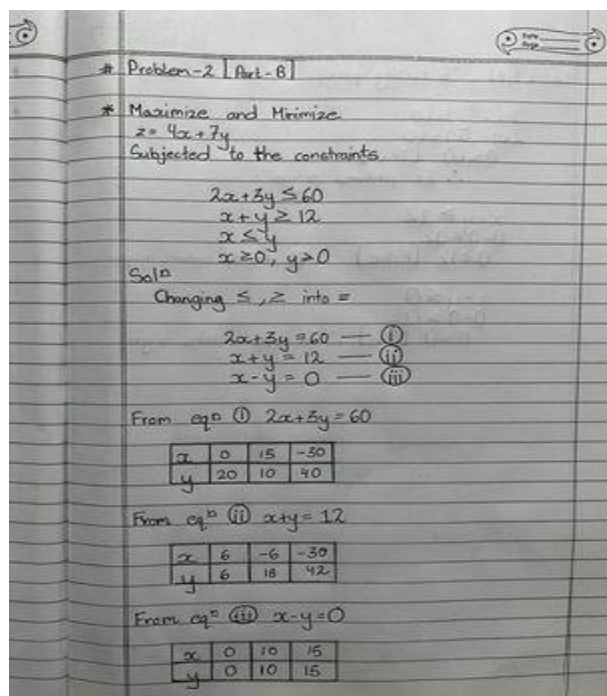 Date
Page
# Problem-2 [Part-B]
* Maximize and Minimize
z= 4x+7y
Subjected to the constraints
2x+3y ≤ 60
x+y ≥ 12
x ≤ y
x ≥0, y≥0
Solⁿ
Changing ≤, ≥ into =
2x+3y =60 — (i)
x+y = 12 — (ii)
x-y = 0 — (iii)
From eqⁿ (i) 2x+3y=60
x 0 15 -30
y 20 10 40
From eqⁿ (ii) x+y= 12
x 6 -6 -30
y 6 18 42
From eqⁿ (iii) x-y=0
x 0 10 15
y 0 10 15